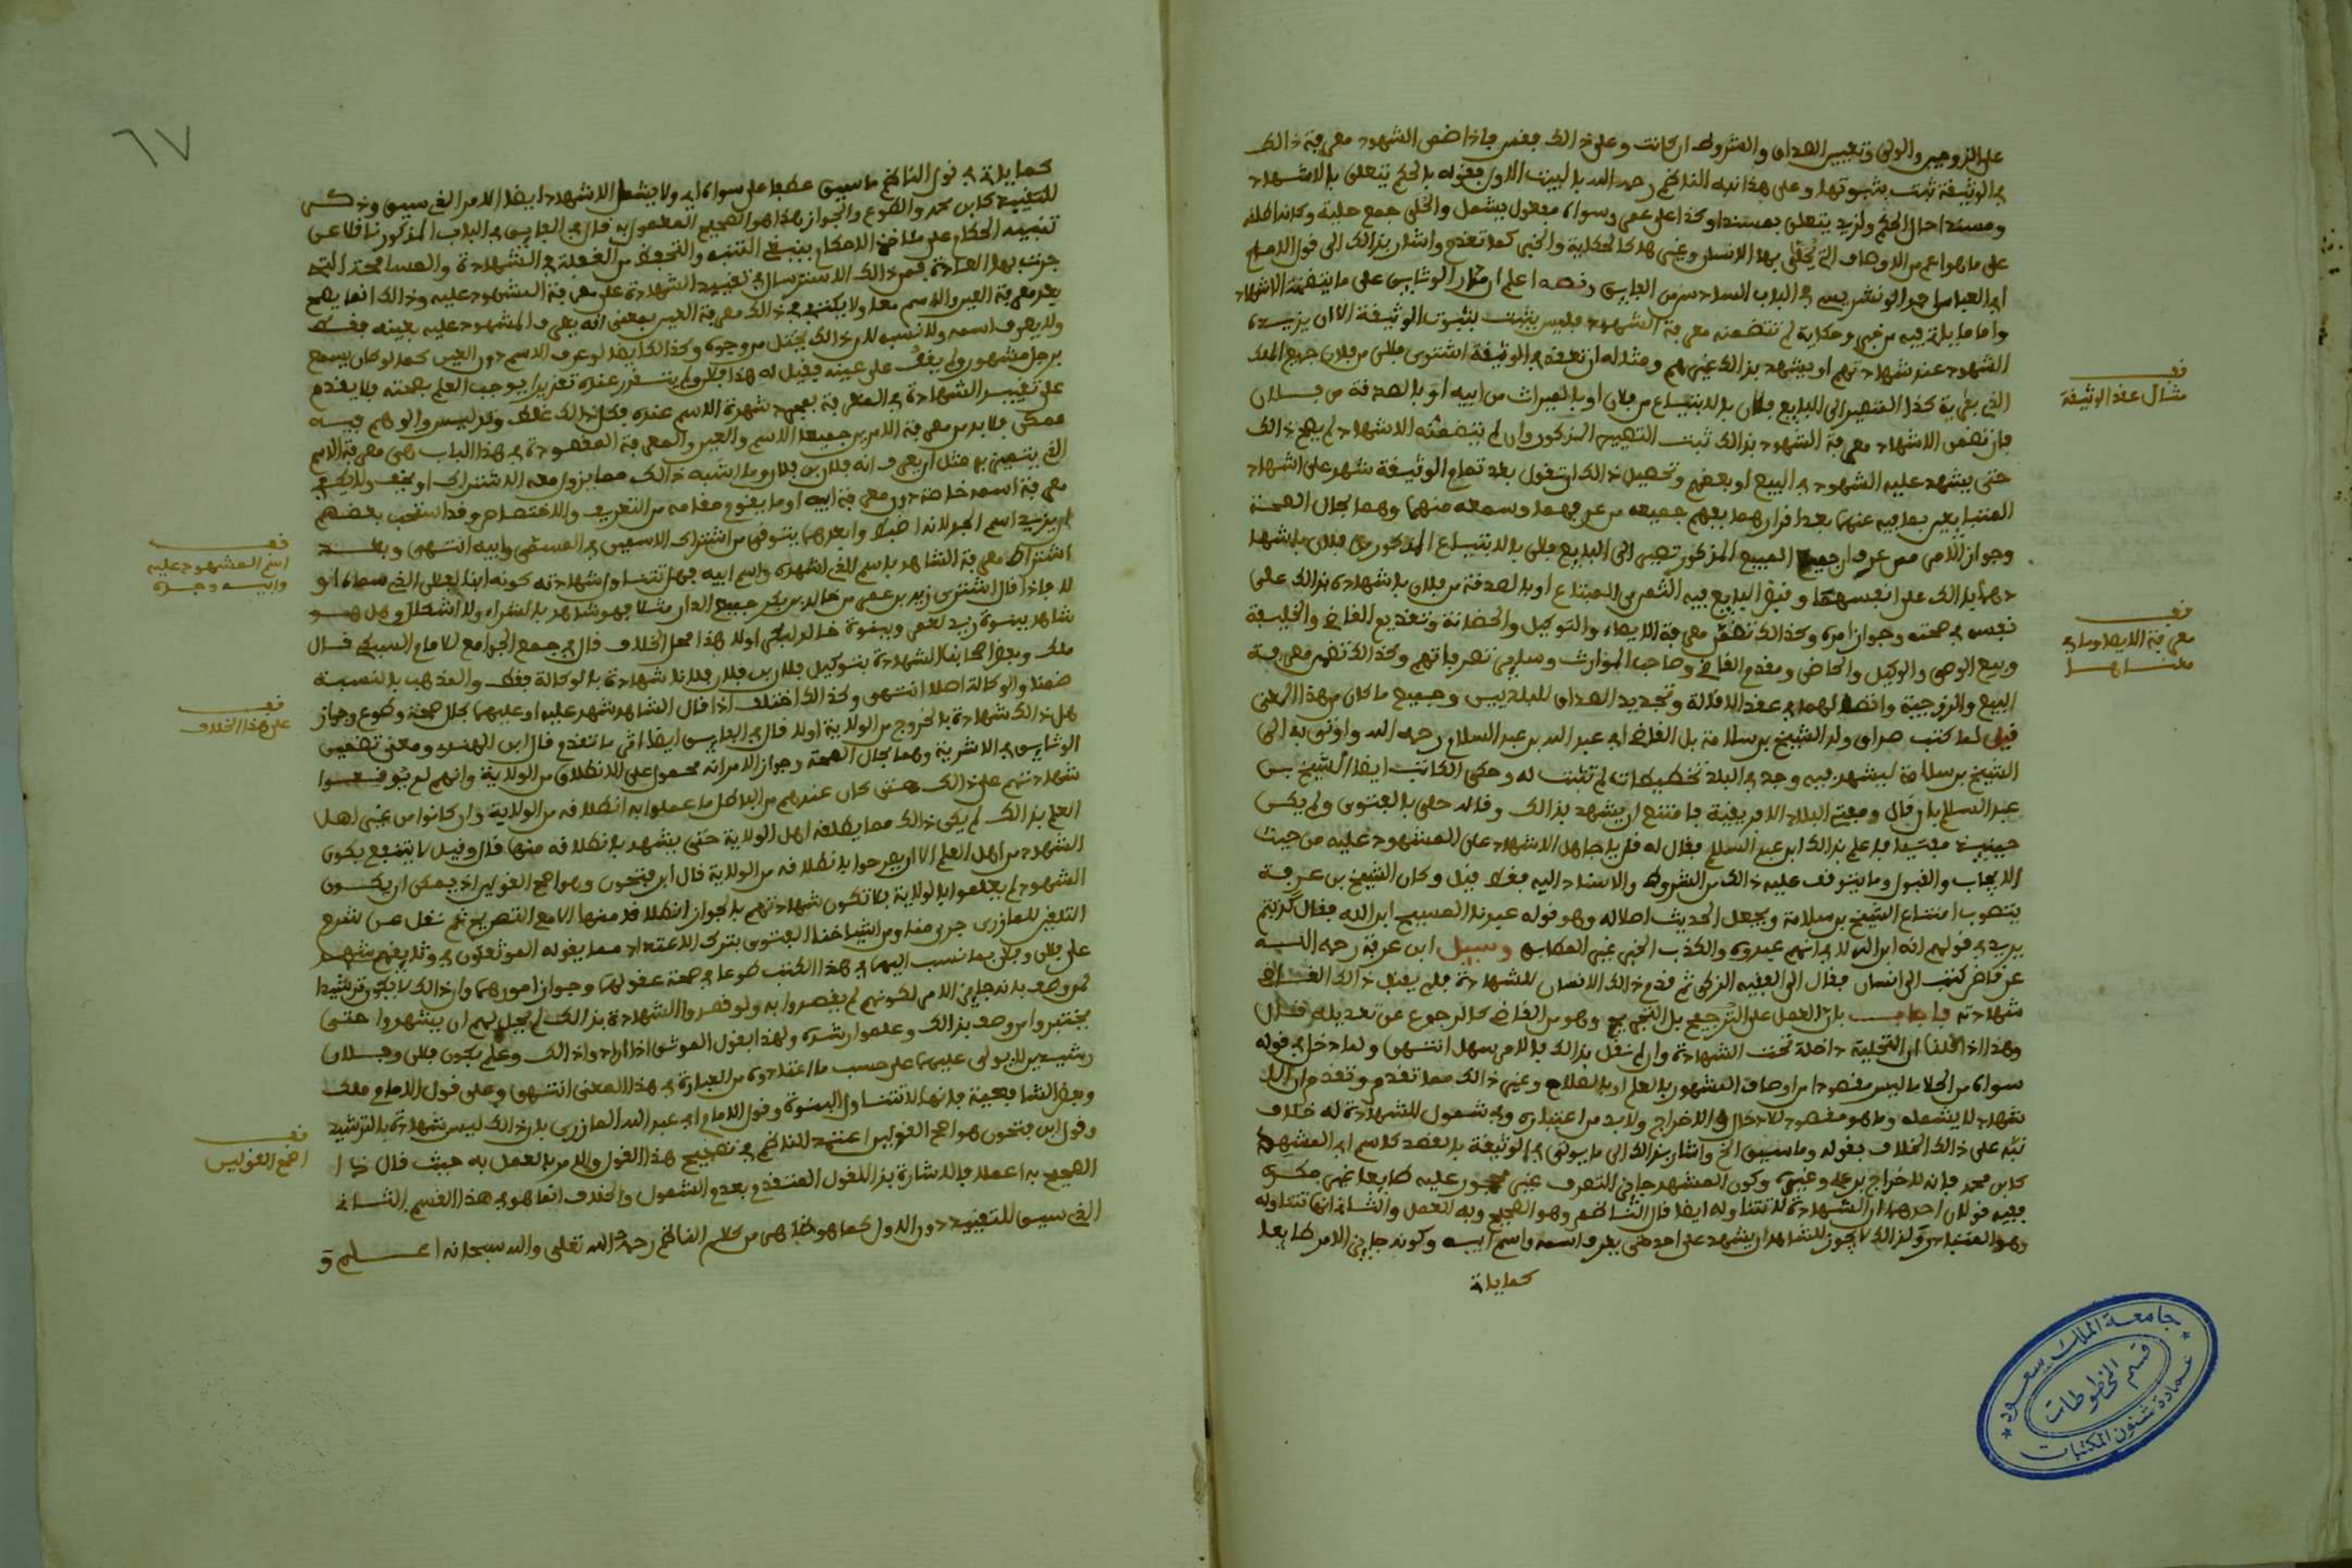 على الزوجين والولي وتعيين الصداق والشروط ان كانت وعلى ذالك فقس فاذا ضمن الشهود معرفة ذالك
في الوثيقة ثبت بثبوتها وعلى هذا نبه الناظم رحمه الله بالبيت الاول فقوله بالحكم يتعلق بالاشهاد
ومسندا حال الحكم ولزيد يتعلق بمسندا وكذا على عمر وسواه مفعول يشمل والحلى جمع حلية وكانه اطلقه
على ما هو اعم من الاوصاف التي يحلى بها الانسان وغيرها كالحكاية والخبر كما تقدم واشار بذالك الى قول الامام
ابي العباس احمد الونشريسي في الباب السادس من الفايق ونصه اعلم ان مدار الوثايق على ما يتضمنه الاشهاد
واما ما ياتي فيه من خبر وحكاية لم تتضمنه معرفة الشهود فليس يثبت بثبوت الوثيقة الا ان يزيده
الشهود عند شهادتهم او يشهد بذالك غيرهم ومثاله ان تعقد في الوثيقة اشترى فلان من فلان جميع الملك
الذي بقرية كذا المتصير الى البايع فلان بالابتياع من فلان او بالميراث من ابيه او بالصدقة من فلان
فان تضمن الاشهاد معرفة الشهود بذالك ثبت التصيير المذكور وان لم يتضمنه الاشهاد لم يصح ذالك
حتى يشهد عليه الشهود في البيع او بعضهم وتحصيل ذالك ان تقول بعد تمام الوثيقة شهد على اشهاد
المتبايعين بما فيه عنهما بعد اقرارهما بفهم جميعه من عرفهما وسمعه منهما وهما بحال الصحة
وجواز الامر ممن عرف ان جميع المبيع المذكور تصير الى البايع فلان بالابتياع المذكور من فلان باشهاد
نفسه في صحته وجواز امره وكذالك تضمن معرفة الايصاء والتوكيل والحضانة وتقديم القاضي والخليفة
وبيع الوصي والوكيل والحاضن ومقدم القاضي وصاحب الموارث وساير تصرفاتهم وكذالك تضمن معرفة
قيل لما كتب صداق ولد الشيخ بن سلامة بل القاضي ابي عبد الله بن عبد السلام رحمه الله واوتي به الى
الشيخ بن سلامة ليشهد فيه وجد في البلد تخطيطات لم تثبت له وحكى الكاتب ايضا الشيخ بن
عبد السلام بان قال ومفتي البلاد الافريقية فامتنع ان يشهد بذالك وقال حلى بالفتوى ولم يكن
حينئذ مفتيا فاعلم بذالك ابن عبد السلام فقال له قل يا جاهل الاشهاد على المشهود عليه من حيث
الايجاب والقبول وما يتوقف عليه ذالك من الشروط والاسناد اليه فقط قيل وكان الشيخ بن عرفة
يتصوب امتناع الشيخ بن سلامة ويجعل الحديث اصلا له وهو قوله عبدنا المسيح ابن الله فقال كذبتم
يريد في قولهم انه ابن الله لا في انهم عبدوه والكذب الخبر غير المطابق وسيل ابن عرفة رحمه الله
عن قاض كتب الى انسان فقال الى الفقيه الزكي ثم قدم ذالك الانسان للشهادة فلم يقبل ذالك القاضي
شهادته فاجاب بان العمل على الترجيح بل التجريح وهو من القاضي كالرجوع عن تعديله قلت
سواه من الحلا ما ليس مقصودا من اوصاف المشهور بالعلم او بالصلاح وغير ذالك مما تقدم وتقدم ان الا
شهاد لا يشمله وما هو مقصود للادخال والاخراج ولا بد من اعتباره وفي شمول الشهادة له خلاف
نبه على ذالك الخلاف بقوله وما سيق الخ واشار بذالك الى ما يوتى في الوثيقة بالقصد كاسم ابي المشهد
كابن محمد فانه لاخراج بن علي وغيره وكون المشهد جايز التصرف غير محجور عليه طايعا غير مكره
ففيه قولان احدهما ان الشهادة لا تتناوله ايضا قال الناظم وهو الصحيح وبه العمل والثاني انها تتناوله
وكذالك لا يجوز للشاهد ان يشهد على احد حتى يعرف اسمه واسم ابيه وكونه جايز الامر طايعا
كما ياتي
قف
مثال عقد الوثيقة
قف
معرفة الايصا وما في
معناها
٦٧
كما ياتي في قول الناظم ما سيق عطفا على سواه اي ولا يشمل الاشهاد ايضا الامر الذي سيق وذكر
للتقييد كابن محمد والطوع والجواز هذا هو الصحيح المعمول به قال في الفايق في الباب المذكور ناقلا عن
تنبيه الحكام على ماخذ الاحكام ينبغي التنبه والتحفظ من الغفلة في الشهادة والمسامحة التي
جرت بها العادة فمن ذالك الاسترسال في تقييد الشهادة على معرفة المشهود عليه وذالك انما يصح
بعد معرفة العين والاسم معا ولا يكتفي في ذالك معرفة العين بمعنى انه يعرف المشهود عليه بعينه فقط
ولا يعرف اسمه ولا نسبه لان ذالك يختل من وجوه وكذالك ايضا لو عرف الاسم دون العين كما لو كان يسمع
برجل مشهور ولم يقف على عينه فقيل له هذا فلان ولم يتقرر عنده تقريرا يوجب العلم بصحته فلا يقدم
على تقييد الشهادة في المعرفة بمجرد شهرة الاسم عنده فكل ذالك غلط وتدليس والوهم فيه
ممكن فلا بد من معرفة الامرين جميعا الاسم والعين والمعرفة المقصودة في هذا الباب هي معرفة الاسم
الذي يتعين به مثل ان يعرف انه فلان بن فلان وما اشبه ذالك مما يزول معه الاشتراك او يخف ولا يكفي
معرفة اسمه خاصة دون معرفة ابيه او ما يقوم مقامه من التعريف والاختصاص وقد استحب بعضهم
ان يزيد اسم الجد لانه اضبط وابعد مما يتوقى من اشتراك الاسمين في المسمى وابيه انتهى وبعد
اشتراط معرفة الشاهد باسم الذي اشهده واسم ابيه فهل تتناول شهادته كونه ابنا لفلان الذي سماه او
لا فاذا قال اشترى زيد بن عمر من خالد بن بكر جميع الدار مثلا فهو شاهد بالشراء ولا اشكال وهل هو
شاهد ببنوة زيد لعمر وبنوة خالد لبكر اولا هذا محل الخلاف قال في جمع الجوامع للامام السبكي قال
ملك وبعض اصحابنا الشهادة بتوكيل فلان بن فلان فلانا شهادة بالوكالة فقط والمذهب بالنسبة
ضمنا والوكالة اصلا انتهى وكذالك اختلف اذا قال الشاهد شهد عليه او عليهما بحال صحة وطوع وجواز
هل ذالك شهادة بالخروج من الولاية اولا قال في الفايق ايضا اثر ما تقدم قال ابن الهندي ومعنى تضمين
الوثايق في الاشرية وهما بحال الصحة وجواز الامر انه محمول على الانطلاق من الولاية وانهم لم يوقعوا
شهادتهم على ذالك حتى كان عندهم من الباطل ما عملوا به انطلاقه من الولاية وان كانوا من غير اهل
العلم بذالك لم يكن ذالك مما يطلقه اهل الولاية حتى يشهد بانطلاقه منها قال وقيل لا ينتفع بكون
الشهود من اهل العلم الا ان يصرحوا بانطلاقه من الولاية قال ابن فتحون وهو اصح القولين اذ يمكن ان يكون
الشهود لم يعلموا بالولاية فلا تكون شهادتهم بالجواز انطلاقا منها الا مع التصريح ثم نقل عن شرح
التلقين للمازري جرى منا ومن اشياخنا الفتوى بترك الاعتداد مما يقوله الموثقون في وثايقهم شهد
على فلان وفلان بما نسب اليهما في هذا الكتب طوعا في صحة عقولهما وجواز امورهما وان ذالك لا يكون ترشيدا
لمن وصف بانه جايز الامر لكونهم لم يقصدوا به ولو قصدوا الشهادة بذالك لم يجز لهم ان يشهدوا حتى
يختبروا من وصف بذالك وعلموا رشده ولهذا يقول الموثق اذا ارادوا ذالك وعلم بكون فلان وفلان
رشيدين لا يولى عليهما على حسب ما اعتادوه من العبارة في هذا المعنى انتهى وعلى قول الامام ملك
وبعض الشافعية فانها لا تتناول البنوة وقول الامام ابي عبد الله المازري بان ذالك ليس شهادة بالترشيد
وقول ابن فتحون هو اصح القولين اعتمد الناظم في تصحيح هذا القول والامر بالعمل به حيث قال ذا
الصحيح به اعملا فالاشارة بذا للقول المتقدم بعدم الشمول والخلاف انما هو في هذا القسم الثاني
الذي سيق للتقييد دون الاول كما هو ظاهر من كلام الناظم رحمه الله تعالى والله سبحانه اعلم
قف
اسم المشهود عليه
وابيه وجده
قف
على هذا الخلاف
قف
اصح القولين
جامعة الملك سعود
قسم المخطوطات
عمادة شئون المكتبات